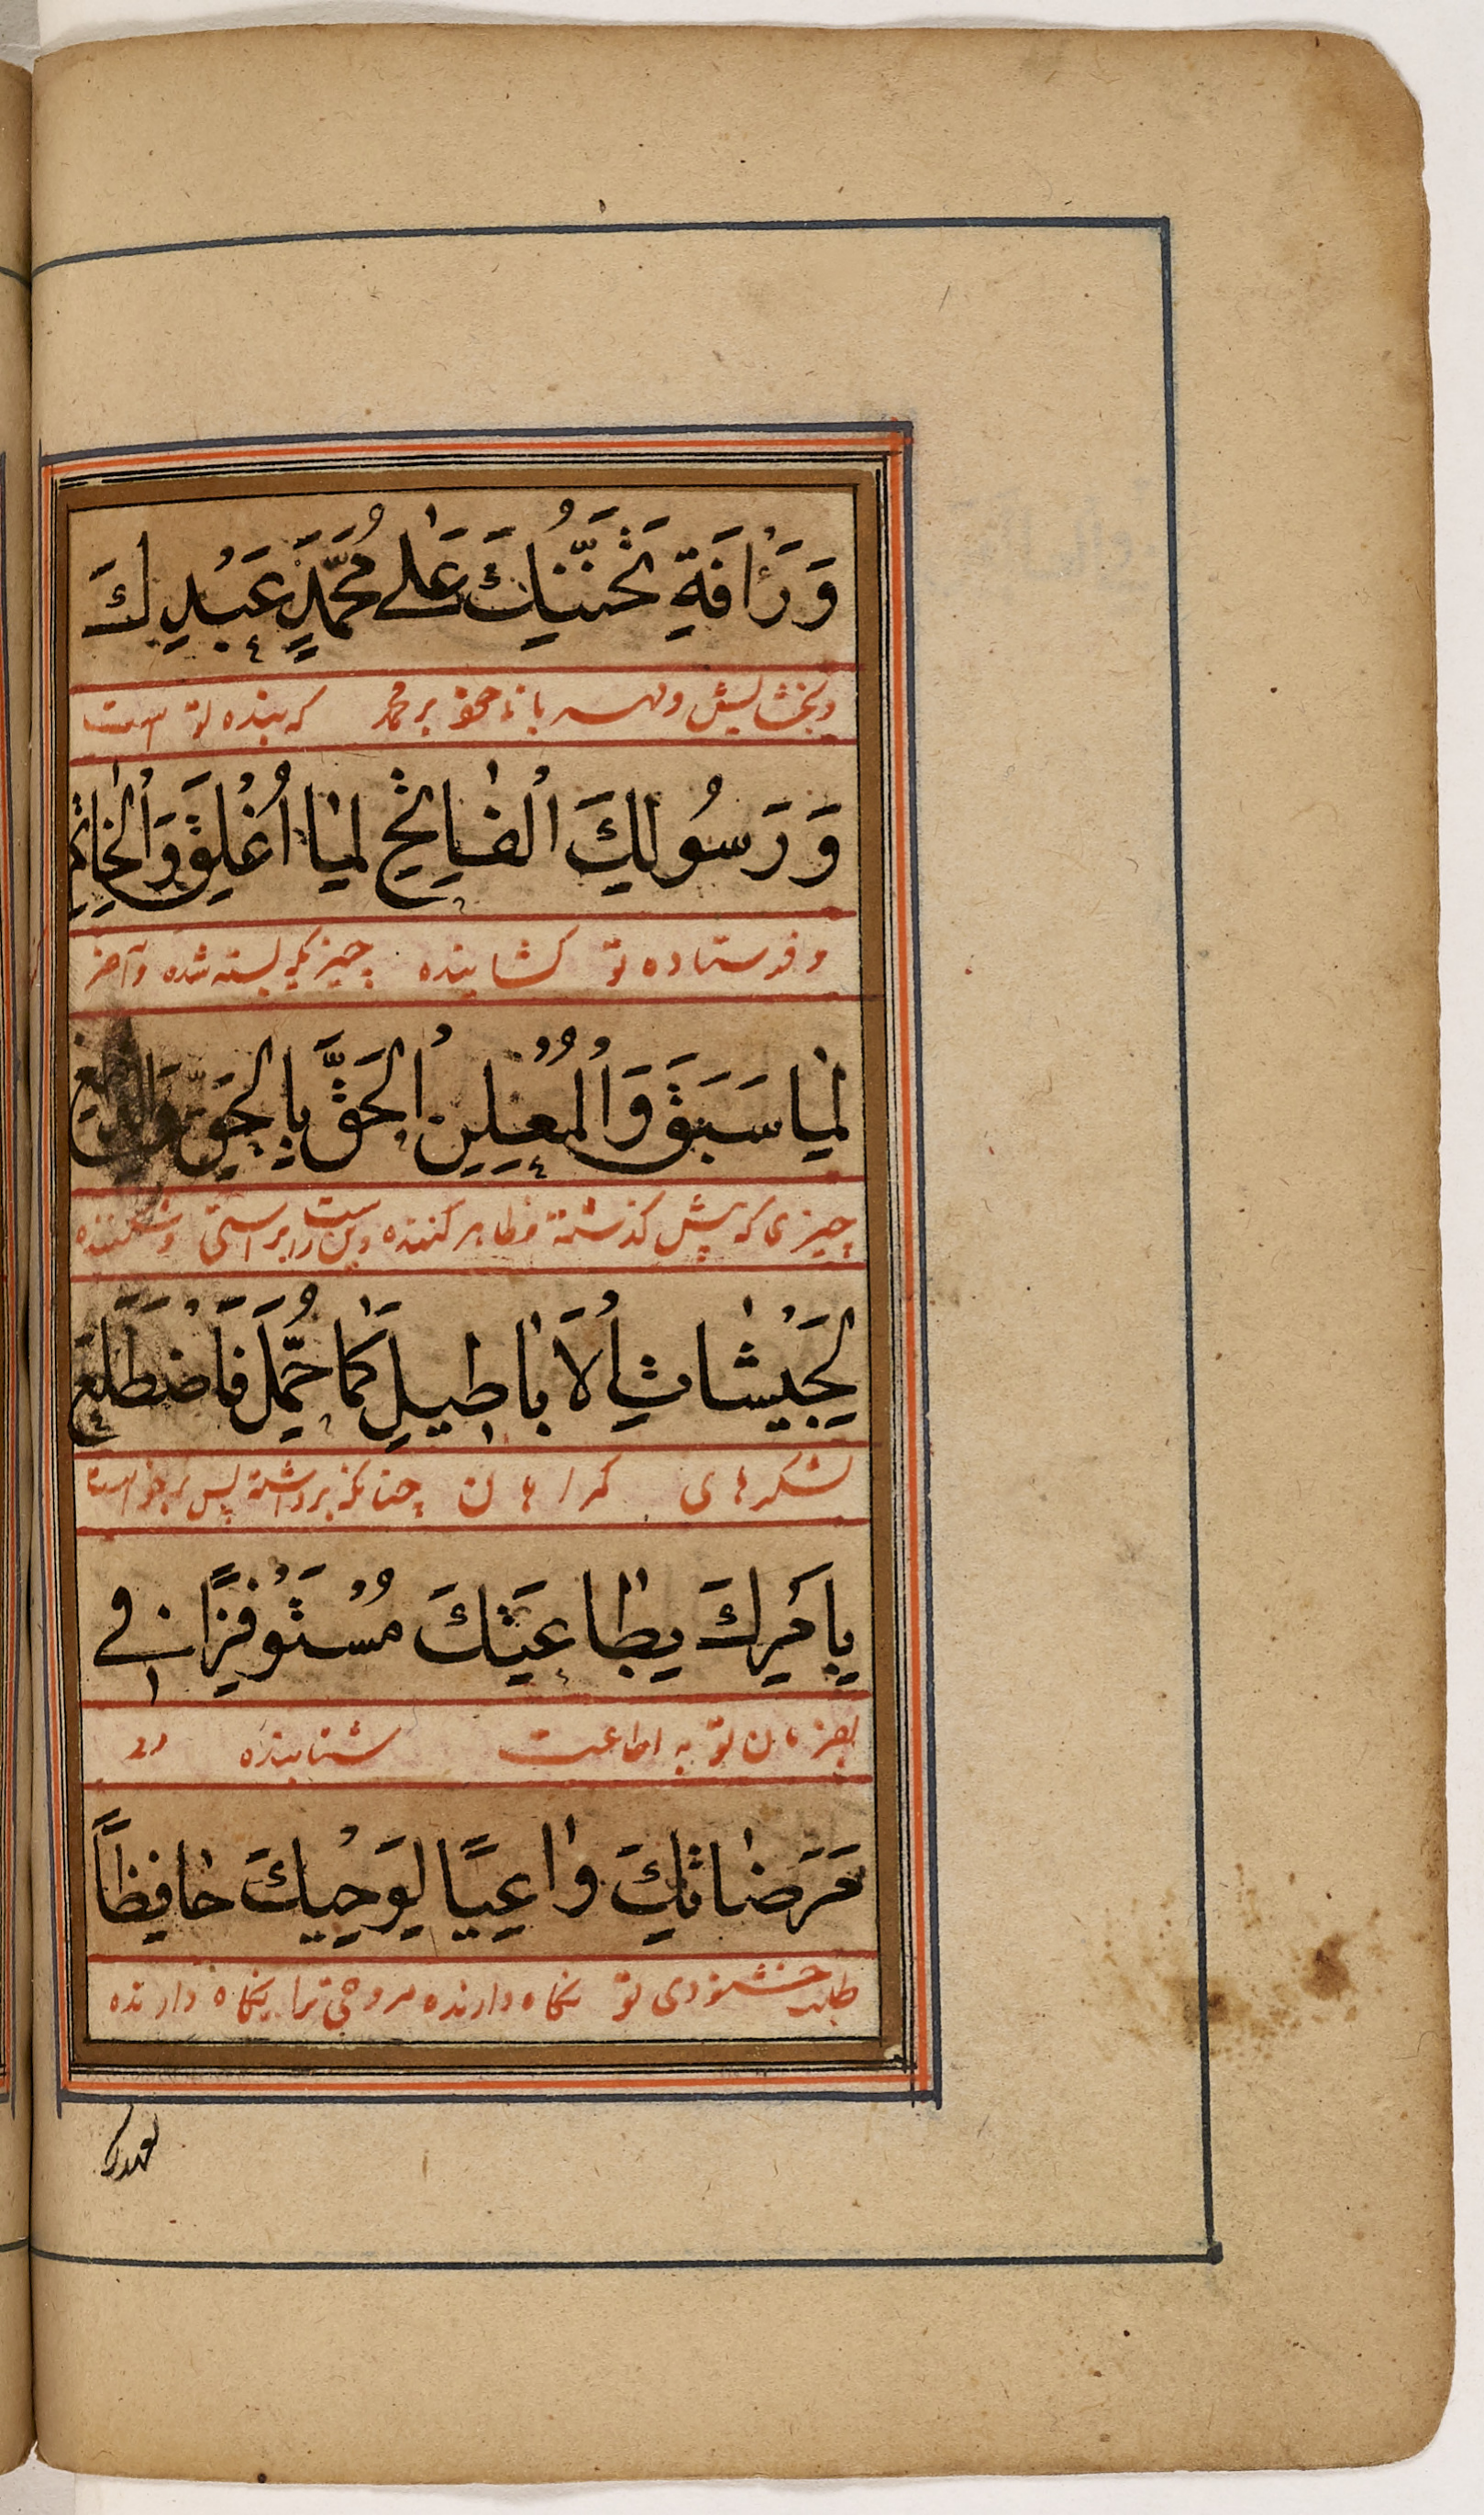 وَرَأْفَةِ تَحَنُّنِكَ عَلٰى مُحَمَّدٍ عَبْدِكَ
وبخشایش ومهربانی خود بر محمد که بنده تو است
وَرَسُولِكَ الْفٰاتِحِ لِمٰا اُغْلِقَ وَالْخٰاتِمِ
وفرستاده تو کشاینده چیزیکه بسته شده وآخر
لِمٰا سَبَقَ وَالْمُعْلِنِ الْحَقَّ بِالْحَقِّ وَالدّٰامِغِ
چیزی که پیش کذشته وظاهر کننده دین راست را براستی وشکننده
لِجَيْشٰاتِ الْاَبٰاطِيلِ كَمٰا حُمِّلَ فَاضْطَلَعَ
لشکرهای کمراهان چنانکه برداشته پس برخواست
بِاَمْرِكَ بِطٰاعَتِكَ مُسْتَوْفِزًا فِي
بفرمان تو به اطاعت شتابنده در
مَرَضٰاتِكَ وٰاعِيًا لِوَحْيِكَ حٰافِظًا
طلب خشنودی تو نکاه دارنده مر وحی ترا نکاه دارنده
لعهدک